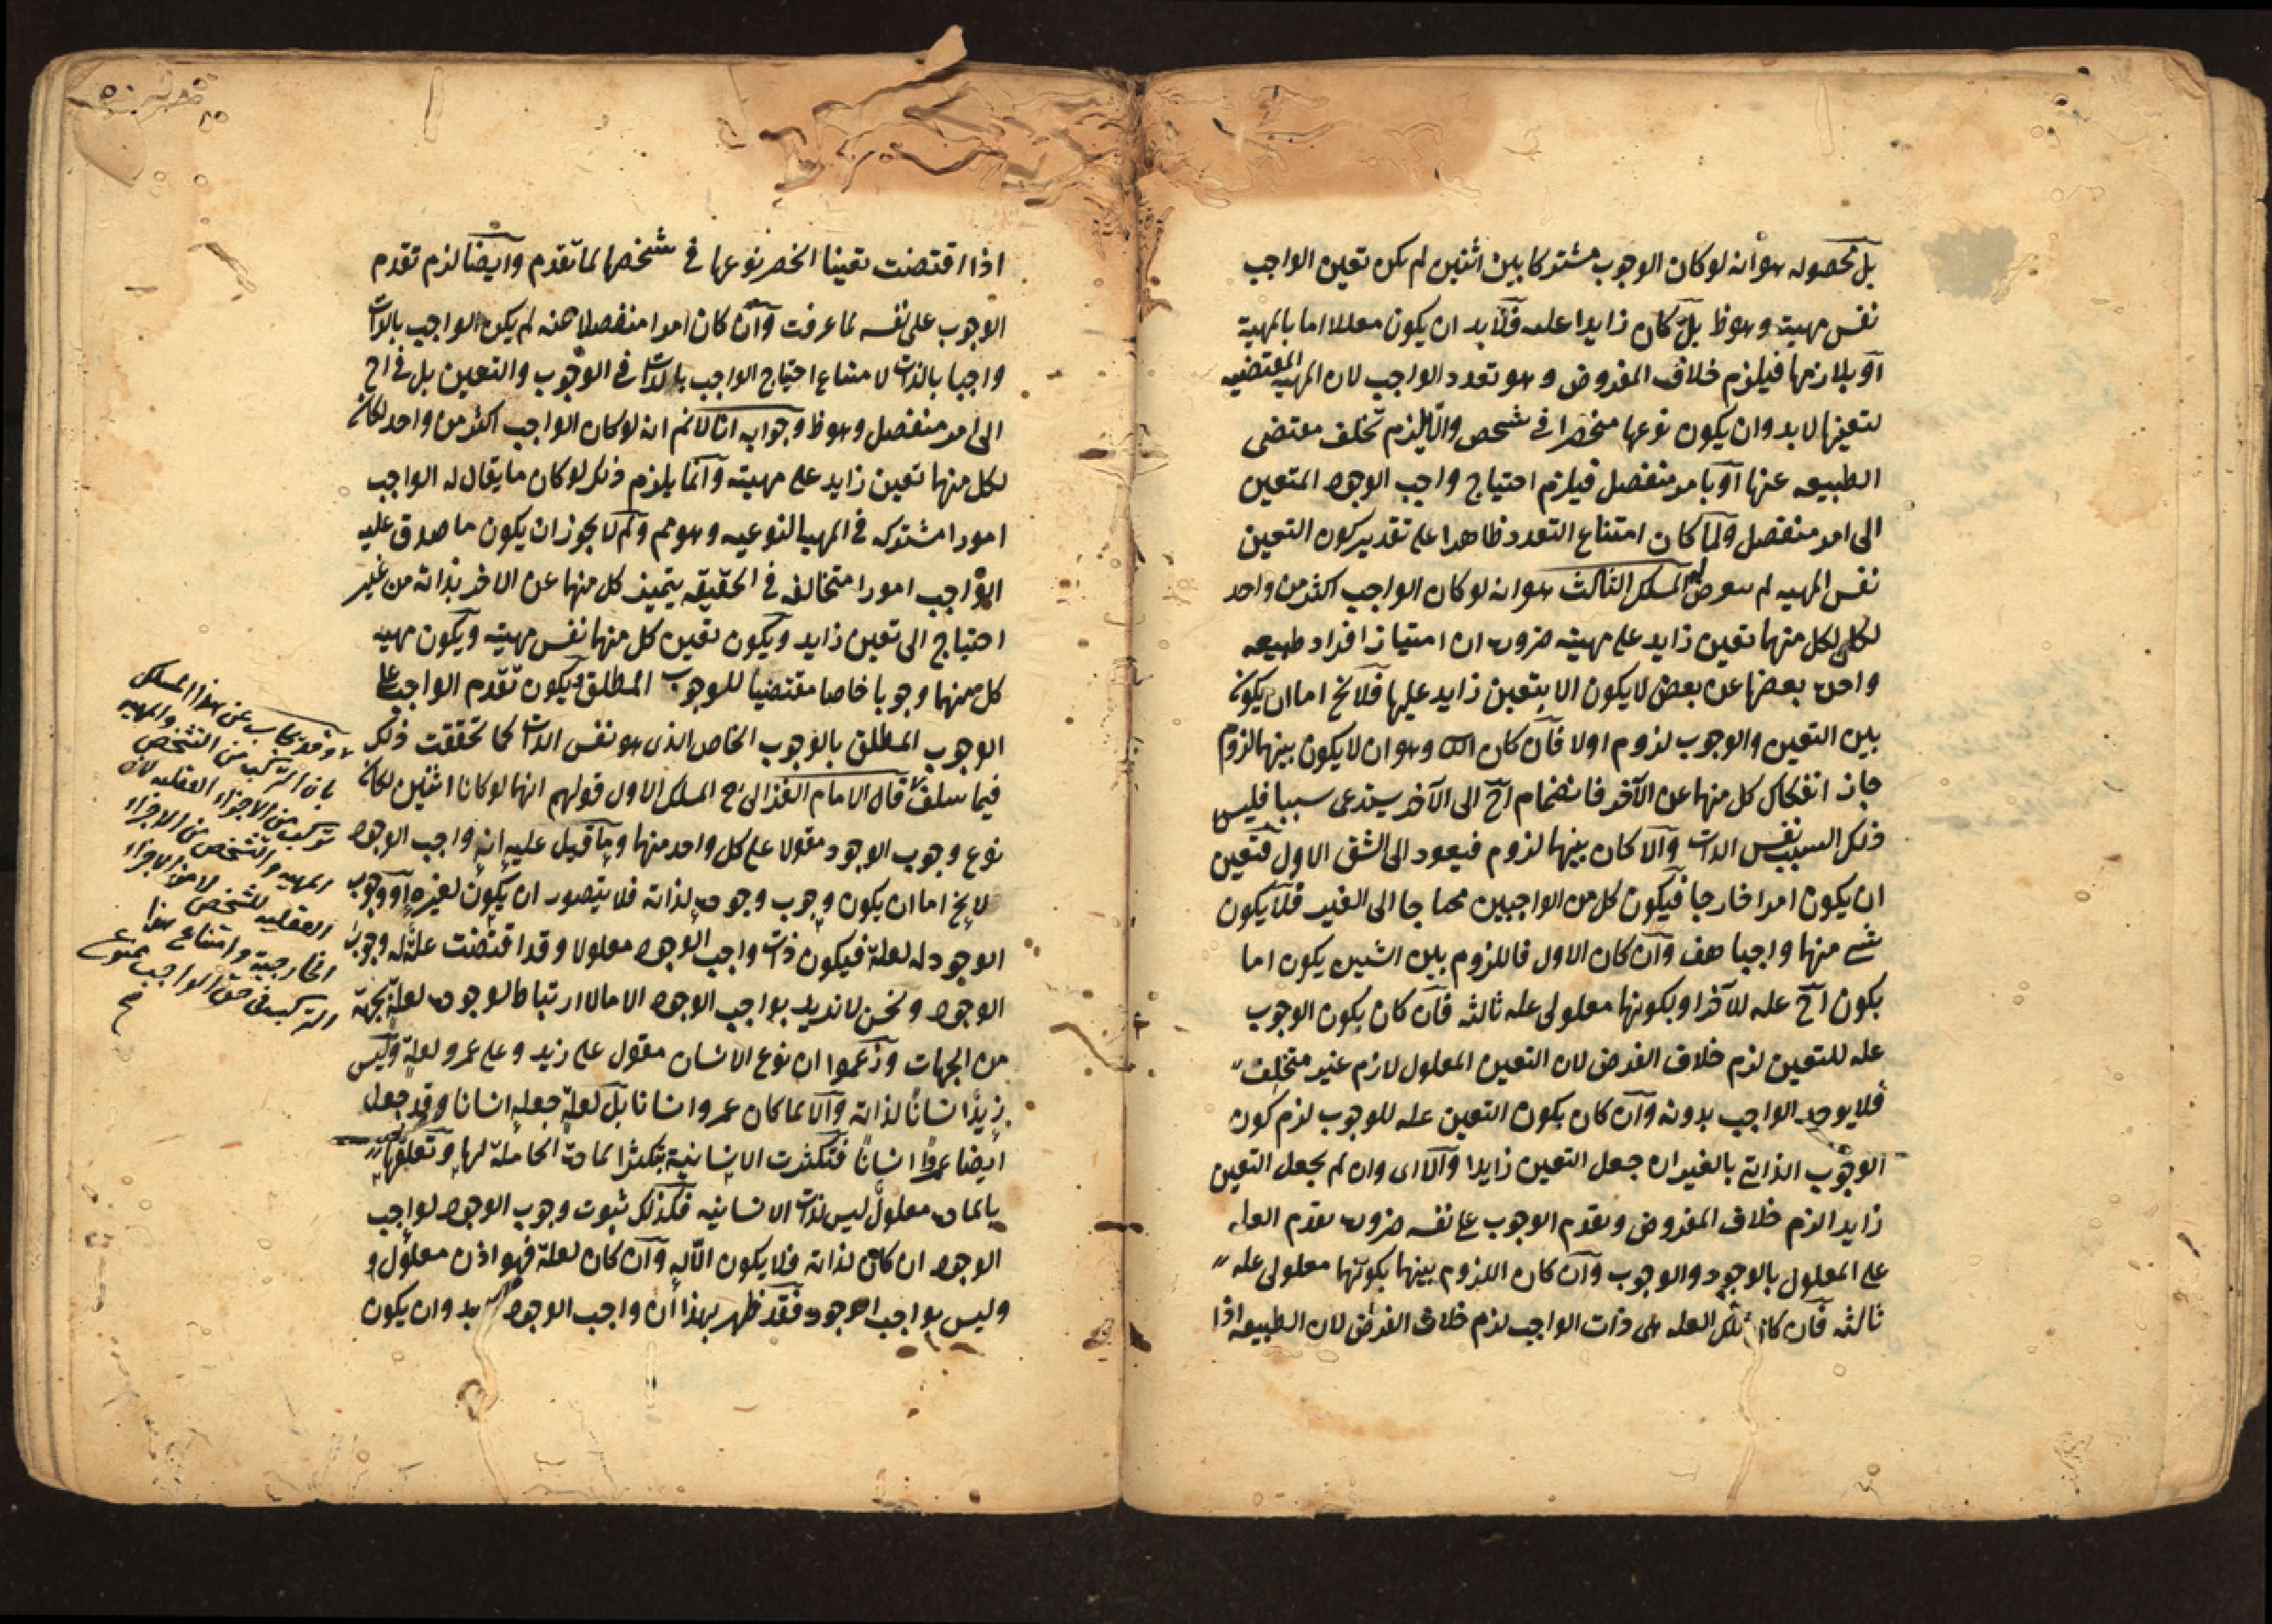 بل محصوله هو انه لو كان الوجوب مشتركا بين اثنين لم يكن تعين الواجب
نفس مهيته وهوظ بل كان زايدا عليه فلا بد ان يكون معللا اما بالمهية
او بلازمها فيلزم خلاف المفروض وهو تعدد الواجب لان المهية المقتضيه
لتعينها لا بد وان يكون نوعها منحصرا في شخص والا يلزم تخلف مقتضى
الطبيعه عنها او بامر منفصل فيلزم احتياج واجب الوجود المتعين
الى امر منفصل ولما كان امتناع التعدد ظاهرا على تقدير كون التعين
نفس المهيه لم يتعرض له المسلك الثالث هو انه لو كان الواجب اكثر من واحد
لكان لكل منهما تعين زايد على مهيته ضرورة ان امتياز افراد طبيعه
واحدة بعضها عن بعض لا يكون الا بتعين زايد عليها فلا يخ اما ان يكون
بين التعين والوجوب لزوم اولا فان كان الثا وهو ان لا يكون بينهما لزوم
جاز انفكاك كل منهما عن الآخر فانضمام اح الى الآخر يستدعى سببا فليس
ذلك السبب نفس الذات والا كان بينهما لزوم فيعود الى الشق الاول فتعين
ان يكون امرا خارجا فيكون كل من الواجبين محتاجا الى الغير فلا يكون
شئ منهما واجبا هف وان كان الاول فاللزوم بين الشيئين يكون اما
بكون اح عله للآخر او بكونهما معلولى عله ثالثه فان كان يكون الوجوب
عله للتعين لزم خلاف الفرض لان التعين المعلول لازم غير متخلف
فلا يوجد الواجب بدونه وان كان بكون التعين عله للوجوب لزم كون
الوجوب الذاتي بالغير ان جعل التعين زايدا والا اى وان لم يجعل التعين
زايد الزم خلاف المفروض وتقدم الوجوب على نفسه ضرورة تقدم العله
على المعلول بالوجود والوجوب وان كان اللزوم بينهما بكونهما معلولى عله
ثالثه فان كان تلك العله هى ذات الواجب لزم خلاف الفرض لان الطبيعه اذا
اذا اقتضت تعينا انحصر نوعها في شخصها لما تقدم وايضا لزم تقدم
الوجوب على نفسه لما عرفت وان كان امرا منفصلا عنه لم يكن الواجب بالذات
واجبا بالذات لامتناع احتياج الواجب بالذات في الوجوب والتعين بل في اح
الى امر منفصل وهوظ وجوابه انا لا نم انه لو كان الواجب اكثر من واحد لكان
لكل منهما تعين زايد على مهيته وانما يلزم ذلك لو كان ما يقال له الواجب
امورا مشتركه في المهيه النوعيه وهو مم ولم لا يجوز ان يكون ما صدق عليه
الواجب امورا متخالفه في الحقيقه يتميز كل منهما عن الاخر بذاته من غير
احتياج الى تعين زايد ويكون تعين كل منهما نفس مهيته ويكون مهيه
كل منهما وجوبا خاصا مقتضيا للوجوب المطلق ويكون تقدم الواجب على
الوجوب المطلق بالوجوب الخاص الذى هو نفس الذات كما تحققت ذلك
فيما سلف قال الامام الغزالى رح المسلك الاول قولهم انهما لو كانا اثنين لكان
نوع وجوب الوجود مقولا على كل واحد منهما وما قيل عليه انه واجب الوجود
لا يخ اما ان يكون وجوب وجوده لذاته فلا يتصور ان يكون لغيره او وجوب
الوجود له لعلة فيكون ذات واجب الوجود معلولا وقد اقتضت علة له وجوب
الوجود ونحن لا نريد بواجب الوجود الا ما لا ارتباط لوجوده لعلة بجهة
من الجهات وزعموا ان نوع الانسان مقول على زيد وعلى عمرو لعلة وليس
زيد انسانا لذاته والا لما كان عمرو انسانا بل لعلة جعله انسانا وقد جعل
ايضا عمروا انسانا فتكثرت الانسانية بتكثر المادة الحاملة لها وتعلقها
بالمادة معلول ليس لذات الانسانيه فكذلك ثبوت وجوب الوجود لواجب
الوجود ان كان لذاته فلا يكون الا له وان كان لعلة فهو اذن معلول و
وليس بواجب الوجود فقد ظهر بهذا ان واجب الوجود لا بد وان يكون
وقد يجاب عن هذا المسلك
بان التركب من التشخص والمهيه
تركب من الاجزاء العقليه لان
المهيه والتشخص من الاجزاء
العقليه للشخص لا من الاجزاء
الخارجية وامتناع هذا
التركب في حق الواجب ممنوع